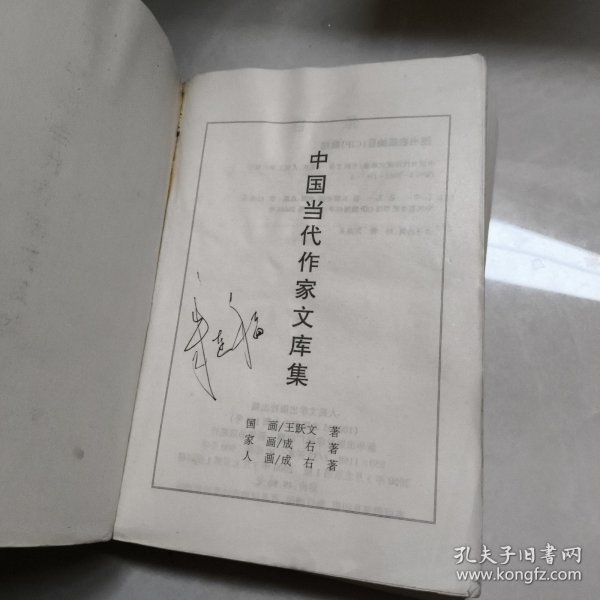 中国当代作家文库集
国 画/王跃文 著
家 画/成 右 著
人 画/成 右 著
孔夫子旧书网
www.kongfz.com